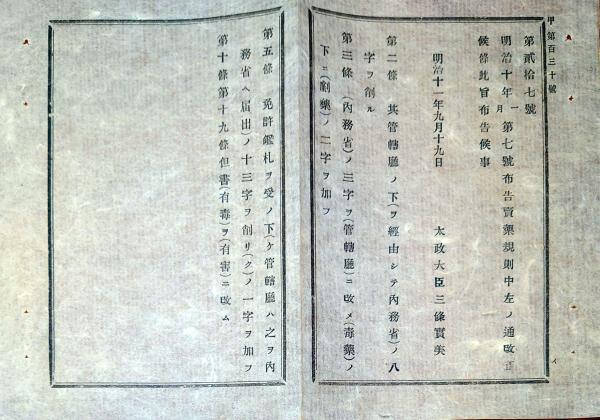 甲第百三十號
第貳拾七號
明治十年一月第七號布告賣藥規則中左ノ通改正
候條此旨布告候事
明治十一年九月十九日 太政大臣三條實美
第二條 其管轄廳ノ下(ヲ經由シテ內務省)ノ八
字ヲ削ル
第三條 (內務省)ノ三字ヲ(管轄廳)ニ改メ(毒藥)ノ
下ニ(劇藥)ノ二字ヲ加フ
第五條 免許鑑札ヲ受ノ下(ケ管轄廳ハ之ヲ內
務省ヘ屆出)ノ十三字ヲ削リ(ク)ノ一字ヲ加フ
第十條第十九條但書(有毒)ヲ(有害)ニ改ム
イ